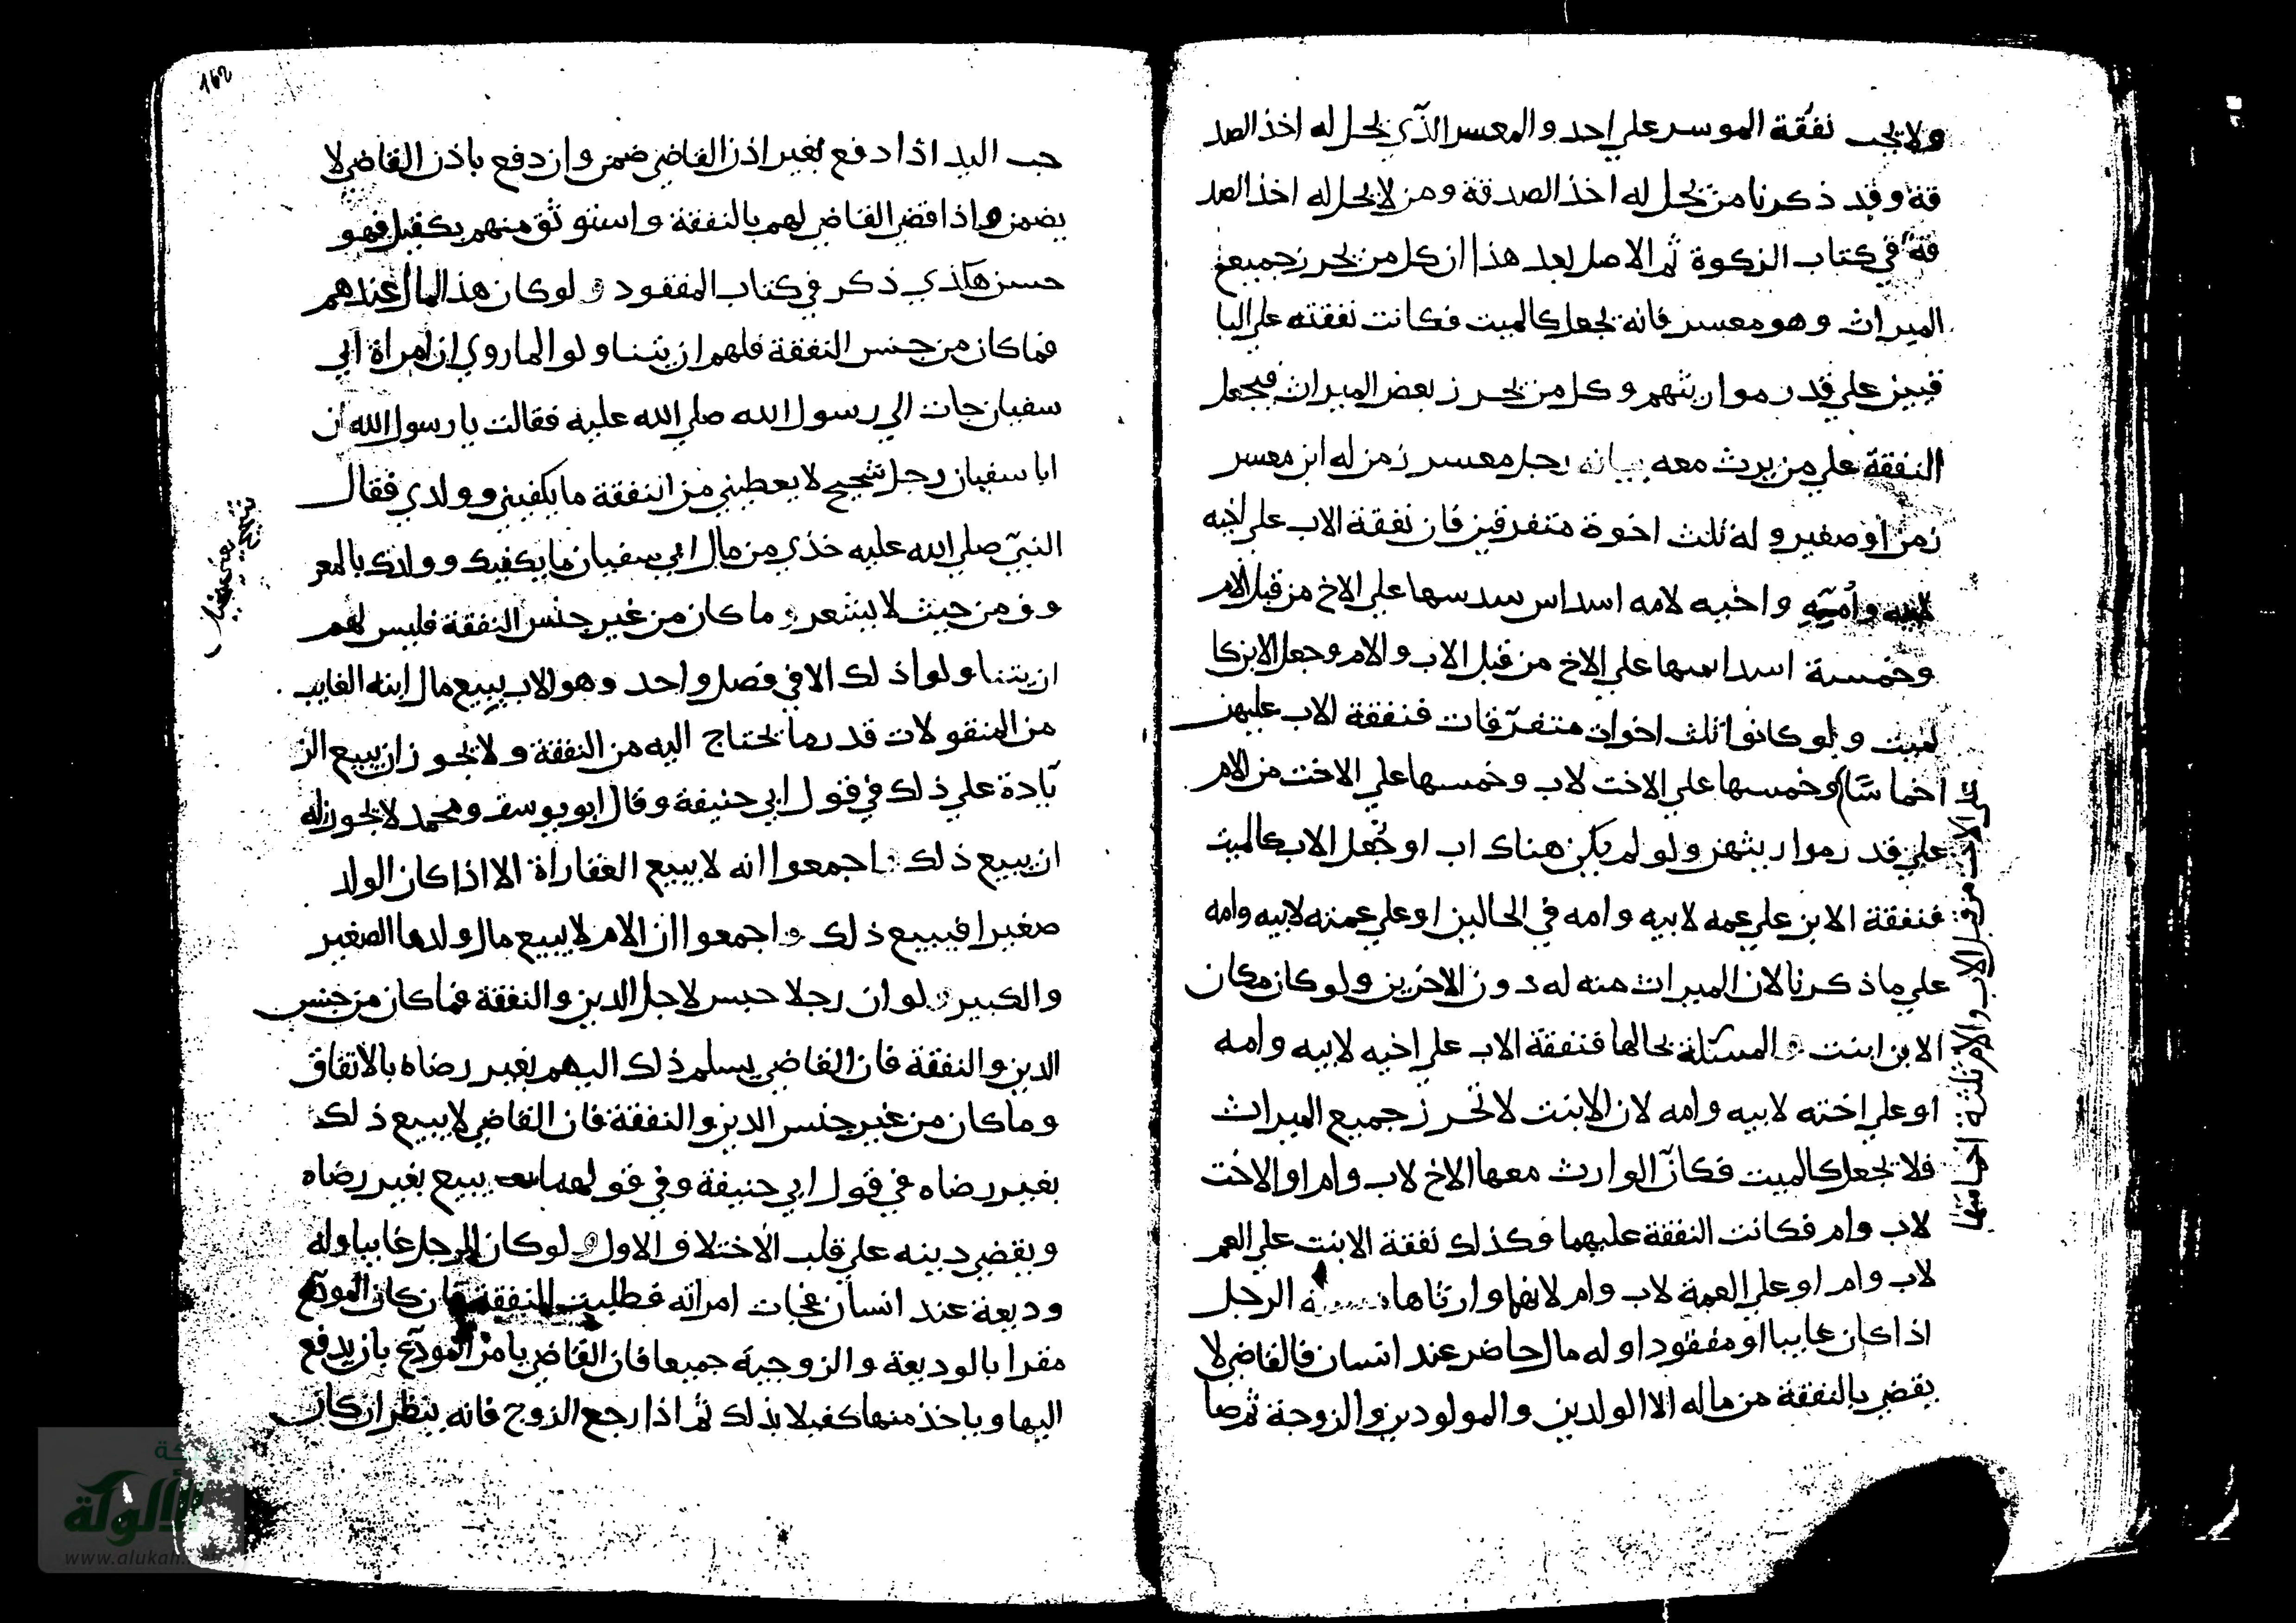 ولا يجب نفقة الموسر علي احد والمعسر الذي يحل له اخذ الصد
قة وقد ذكرنا من يحل له اخذ الصدقة ومن لا يحل له اخذ الصد
قة في كتاب الزكوة ثم الاصل بعد هذا ان كل من يحرز جميع
الميراث وهو معسر فانه يجعل كالميت فكانت نفقته علي البا
قيين علي قدر مواريثهم وكل من يحرز بعض الميراث فيجعل
النفقة علي من يرث معه بيانه رجل معسر زمن له ابن معسر
زمن او صغير وله ثلث اخوة متفرقين فان نفقة الاب علي اخيه
لابيه وامه واخيه لامه اسداس سدسها علي الاخ من قبل الام
وخمسة اسداسها علي الاخ من قبل الاب والام وجعل الابن كا
لميت ولو كانوا ثلث اخوات متفرقات فنفقة الاب عليهن
اخماسا وخمسها علي الاخت لاب وخمسها علي الاخت من الام
علي قدر مواريثهن ولو لم يكن هناك اب او جعل الاب كالميت
فنفقة الابن علي عمه لابيه وامه في الحالين او علي عمته لابيه وامه
علي ما ذكرنا لان الميراث منه له دون الاخرين ولو كان مكان
الابن ابنت والمسئلة بحالها فنفقة الاب علي اخيه لابيه وامه
او علي اخته لابيه وامه لان الابنت لا تحرز جميع الميراث
فلا يجعل كالميت فكان الوارث معها الاخ لاب وام او الاخت
لاب وام فكانت النفقة عليهما وكذلك نفقة الابنت علي العم
لاب وام او علي العمة لاب وام لانهما وارثاها الرجل
اذا كان غايبا او مفقودا وله مال حاضر عند انسان فالقاضي لا
يقضي بالنفقة من ماله الا الوالدين والمولودين والزوجة ثم صا
علي الاخت من قبل الاب والام ثلثة اخماسها
162
حب اليد اذا دفع بغير اذن القاضي ضمن وان دفع باذن القاضي لا
يضمن واذا قضي القاضي لهم بالنفقة واستوثق منهم بكفيل فهو
حسن هكذي ذكر في كتاب المفقود ولو كان هذا المال عندهم
فما كان من جنس النفقة فلهم ان يتناولوا لما روي ان امراة ابي
سفيان جات الي رسول الله صلي الله عليه فقالت يا رسول الله ان
ابا سفيان رجل شحيح لا يعطيني من النفقة ما يكفيني وولدي فقال
النبي صلي الله عليه خذي من مال ابي سفيان ما يكفيك وولدك بالمعر
وف من حيث لا يشعر وما كان من غير جنس النفقة فليس لهم
ان يتناولوا ذلك الا في فصل واحد وهو الاب يبيع مال ابنه الغايب
من المنقولات قدر ما يحتاج اليه من النفقة ولا يجوز ان يبيع الز
يادة علي ذلك في قول ابي حنيفة وقال ابو يوسف ومحمد لا يجوز له
ان يبيع ذلك واجمعوا انه لا يبيع العقاراة الا اذا كان الولد
صغيرا فيبيع ذلك واجمعوا ان الام لا يبيع مال ولدها الصغير
والكبير ولو ان رجلا حبس لاجل الدين والنفقة فما كان من جنس
الدين والنفقة فان القاضي يسلم ذلك اليهم بغير رضاه بالاتفاق
وما كان من غير جنس الدين والنفقة فان القاضي لا يبيع ذلك
بغير رضاه في قول ابي حنيفة وفي قولهما يبيع بغير رضاه
ويقضي دينه علي قلب الاختلاف الاول ولو كان الرجل غايبا وله
وديعة عند انسان فجات امراته فطلبت النفقة فان كان المودع
مقرا بالوديعة والزوجية جميعا فان القاضي يامر المودع بان يدفع
اليها وياخذ منها كفيلا بذلك ثم اذا رجع الزوج فانه ينظر ان كان
شحيح يعني